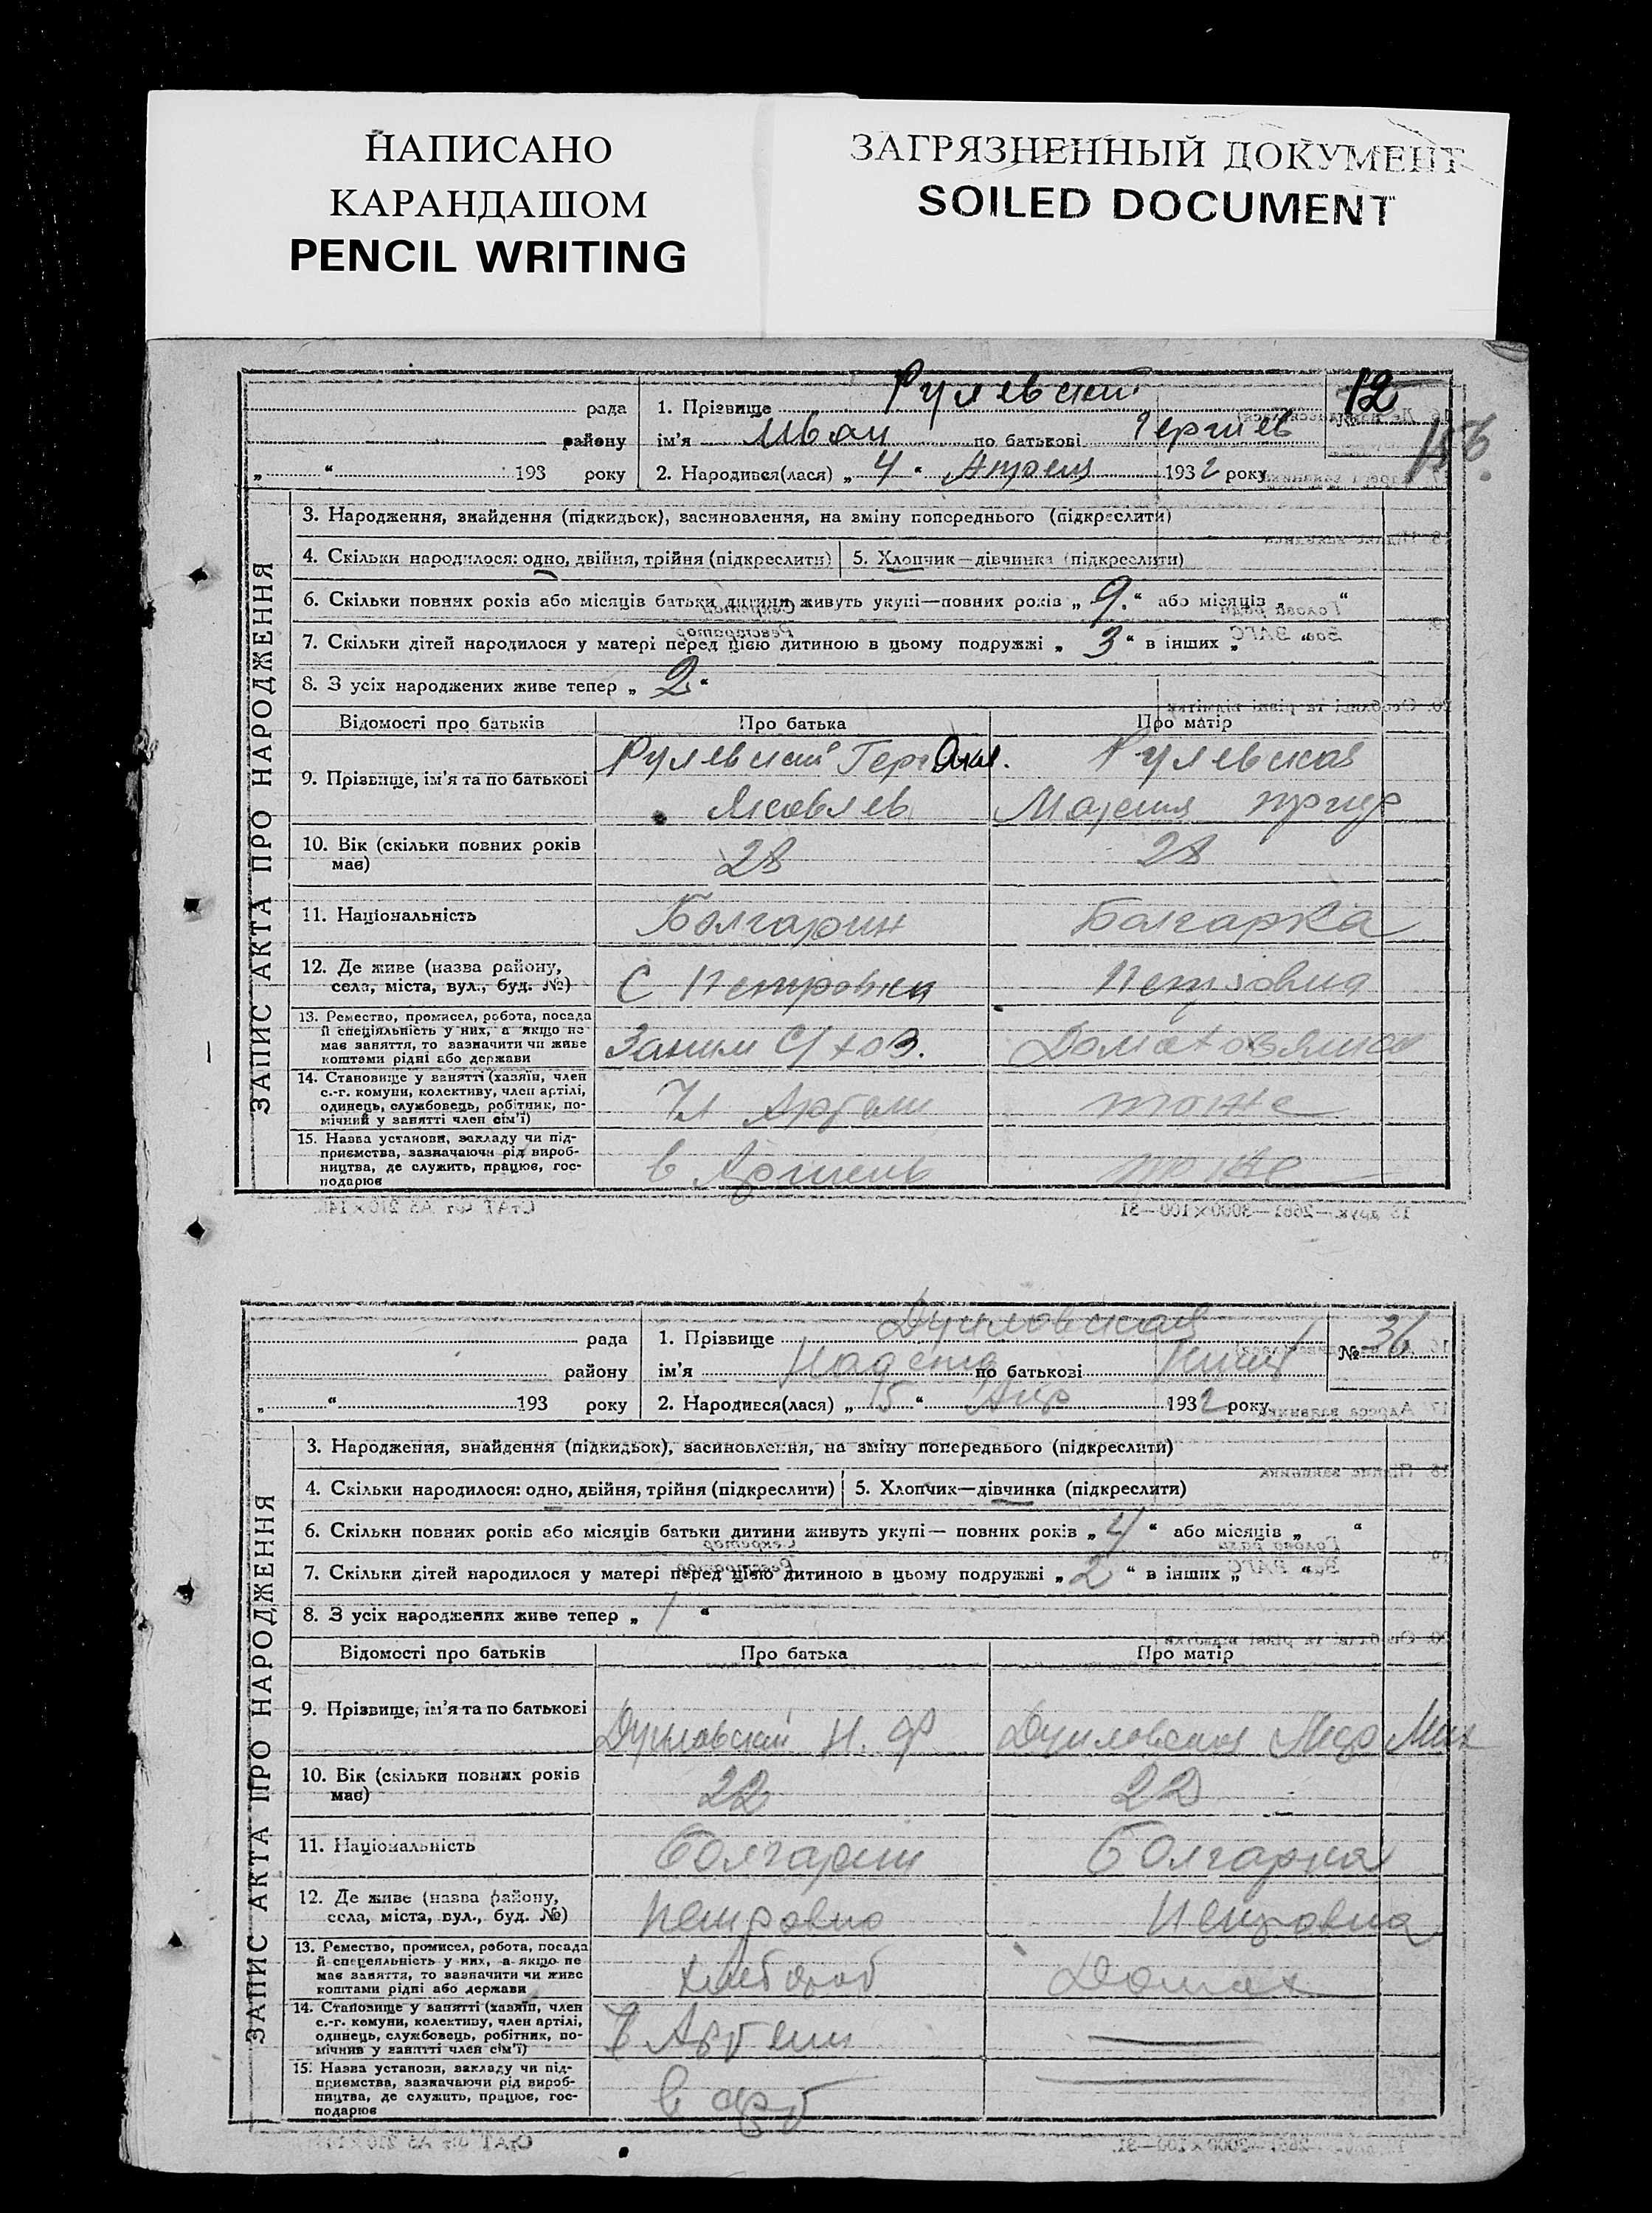 НАПИСАНО
КАРАНДАШОМ
PENCIL WRITING
ЗАГРЯЗНЕННЫЙ ДОКУМЕНТ
SOILED DOCUMENT
ЗАПИС АКТА ПРО НАРОДЖЕННЯ
рада
району
„ “ 193 року
1. Прізвище Рулевский
ім'я Иван по батькові
2. Народився(лася) „ 4 “ 1932 року
12
3. Народження, знайдення (підкидьок), засиновлення, на зміну попереднього (підкреслити)
4. Скільки народилося: одно, двійня, трійня (підкреслити)
5. Хлопчик—дівчинка (підкреслити)
6. Скільки повних років або місяців батьки дитини живуть укупі—повних років „ 9. “ або місяців „ “
7. Скільки дітей народилося у матері перед цією дитиною в цьому подружжі „ 3 “ в інших „ “
8. З усіх народжених живе тепер „ 2 “
Відомості про батьків Про батька Про матір
9. Прізвище, ім'я та по батькові
Рулевский Яковлев
Рулевская
10. Вік (скільки повних років має) 28 28
11. Національність Болгарин Болгарка
12. Де живе (назва району, села, міста, вул., буд. №) С Петровка Петровка
13. Ремество, промисел, робота, посада
й спеціяльність у них, а якщо не
має заняття, то зазначити чи живе
коштами рідні або держави
Заним С/хоз.
14. Становище у занятті (хазяїн, член
с.-г. комуни, колективу, член артілі,
одинець, службовець, робітник, по-
мічний у занятті член сім'ї)
Чл Артели тоже
15. Назва установи, закладу чи під-
приємства, зазначаючи рід вироб-
ництва, де служить, працює, гос-
подарює
в Артель тоже
ЗАПИС АКТА ПРО НАРОДЖЕННЯ
рада
району
„ “ 193 року
1. Прізвище
ім'я по батькові
2. Народився(лася) „ 15 “ Апр 1932 року
№ 36
3. Народження, знайдення (підкидьок), засиновлення, на зміну попереднього (підкреслити)
4. Скільки народилося: одно, двійня, трійня (підкреслити)
5. Хлопчик—дівчинка (підкреслити)
6. Скільки повних років або місяців батьки дитини живуть укупі— повних років „ 4 “ або місяців „ “
7. Скільки дітей народилося у матері перед цією дитиною в цьому подружжі „ 2 “ в інших „ “
8. З усіх народжених живе тепер „ 1 “
Відомості про батьків Про батька Про матір
9. Прізвище, ім'я та по батькові
10. Вік (скільки повних років має) 22 22
11. Національність болгарин болгарка
12. Де живе (назва району, села, міста, вул., буд. №) Петровка Петровка
13. Ремество, промисел, робота, посада
й спецеяльність у них, а якщо не
має заняття, то зазначити чи живе
коштами рідні або держави
хлебороб Домах
14. Становище у занятті (хазяїн, член
с.-г. комуни, колективу, член артілі,
одинець, службовець, робітник, по-
мічнив у занятті член сім'ї)
Ч Артели
15. Назва установи, закладу чи під-
приємства, зазначаючи рід вироб-
ництва, де служить, працює, гос-
подарює
в арт